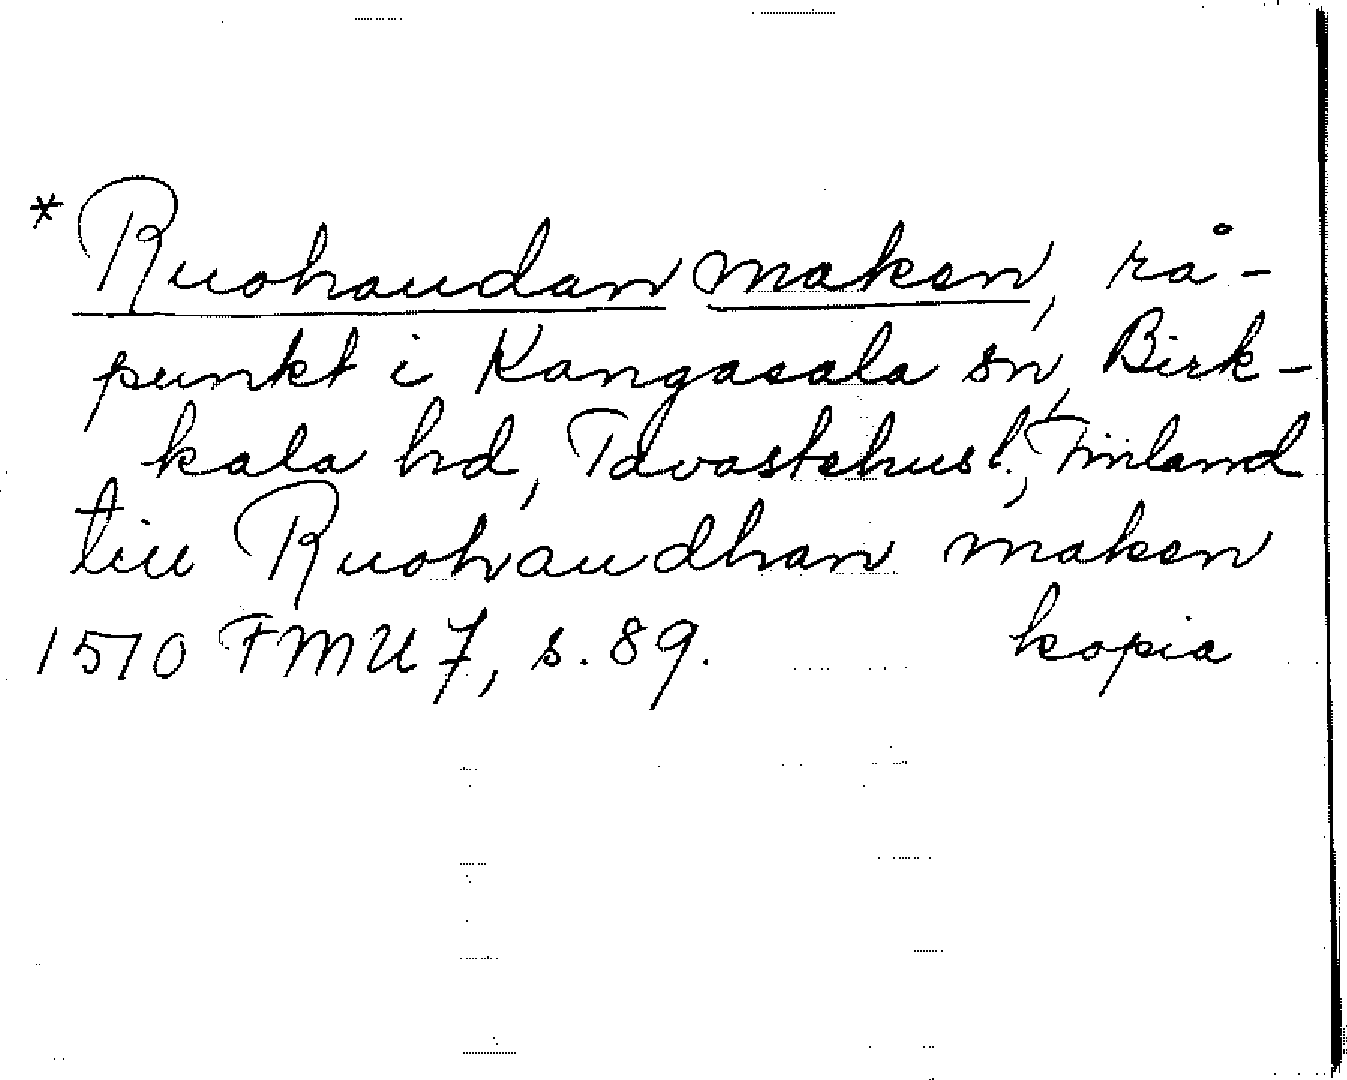 * Ruohaudan maken, rå-
punkt i Kangasala sn, Birk-
kala hd, Tavastehus l., Finland
till Ruohaudhan maken
1570 FMU 7, s. 89. kopia